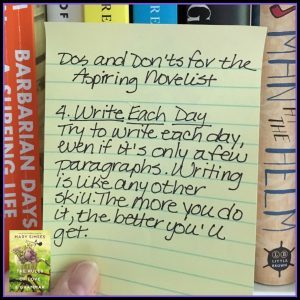 Dos and Don'ts for the
Aspiring Novelist
4. Write Each Day
Try to write each day,
even if it's only a few
paragraphs. Writing
is like any other
skill. The more you do
it, the better you'll
get.
BARBARIAN DAYS
A SURFING LIFE
MAN
THE HELM
LB
LITTLE BROWN
MARY SIMSES
THE RULES
OF LOVE
& GRAMMAR